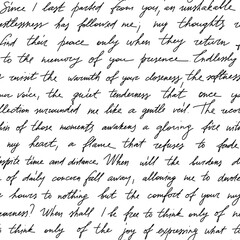 Since I last parted from you, an unshakable
restlessness has followed me; my thoughts
find their peace only when they return
to the memory of your presence. Endlessly
revisit the warmth of your closeness, the softness
your voice, the quiet tenderness that once
llection surrounded me like a gentle veil. The
of those moments awakens a glowing fire
my heart, a flame that refuses to fade
espite time and distance. When will the burdens
of daily concern fall away, allowing me to devote
hours to nothing but the comfort of your my
When shall I be free to think only of
think only of the joy of expressing what